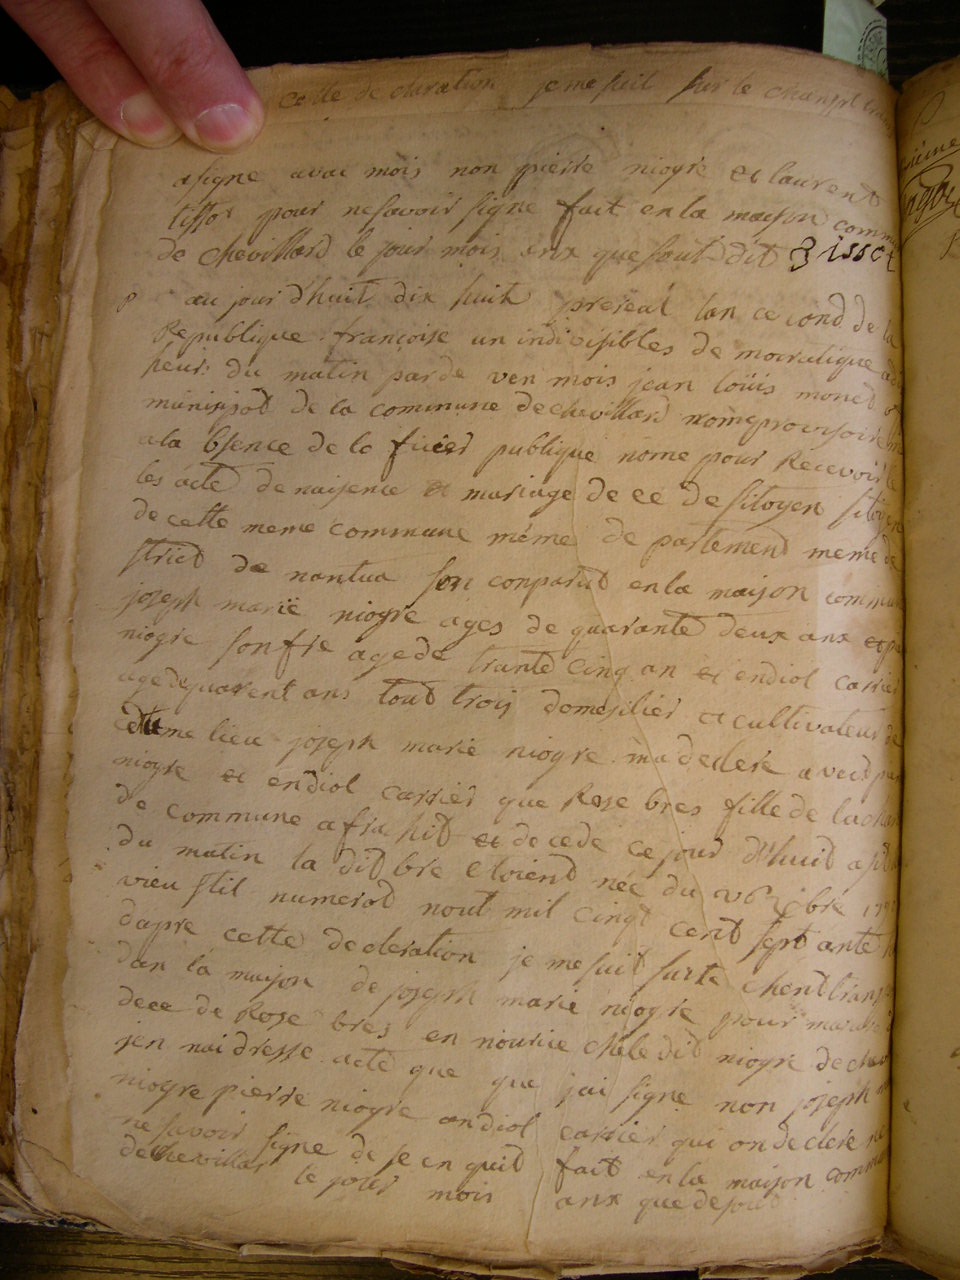 cette declaration je me suit sur le
asigne avai mois non pierre niogre et laurent
tissot pour ne savoir signe fait en la maison comm
de chevillard le jour mois anx que sout dit
au jour d'huit dix huit prereal lan cecond de la
Republique françoise un indicisibles de mocratique
heur du matin par de ven mois jean loüis moned
münisipot de la commune de chevillard nome provisoire
a la bsence de lo ficier publique nome pour Recevoir
les acte de naisence et mariage de ce de sitoyen sitoyen
de cette meme commune même de partemend meme de
strict de nantua son conparut en la maison commun
joseph marië niogre ages de quarante deux anx et
niogre son fre age de trante cinq an et endiol carrier
age de quarent ans tout trois domesilier et cultivateur de
du me lieu joseph marie niogre ma declere avect
niogre et endiol carrier que Rose bres fille de la
de commune a et decede ce jour d'huit a
du matin la dit bre etoient née du
vieu stil numerod nout mil cingt cent sept ante
dapre cette decleration je me suit surte
dan la maison de joseph marie niogre pour
de Rose bres en nourice ché le dit niogre de
jen nai dresse acte que que jai signe non joseph
niogre pierre niogre andiol carrier qui on declere ne
ne savoir signe de se en quit fait en la maison comm
de chevillar le jour mois anx que de sout